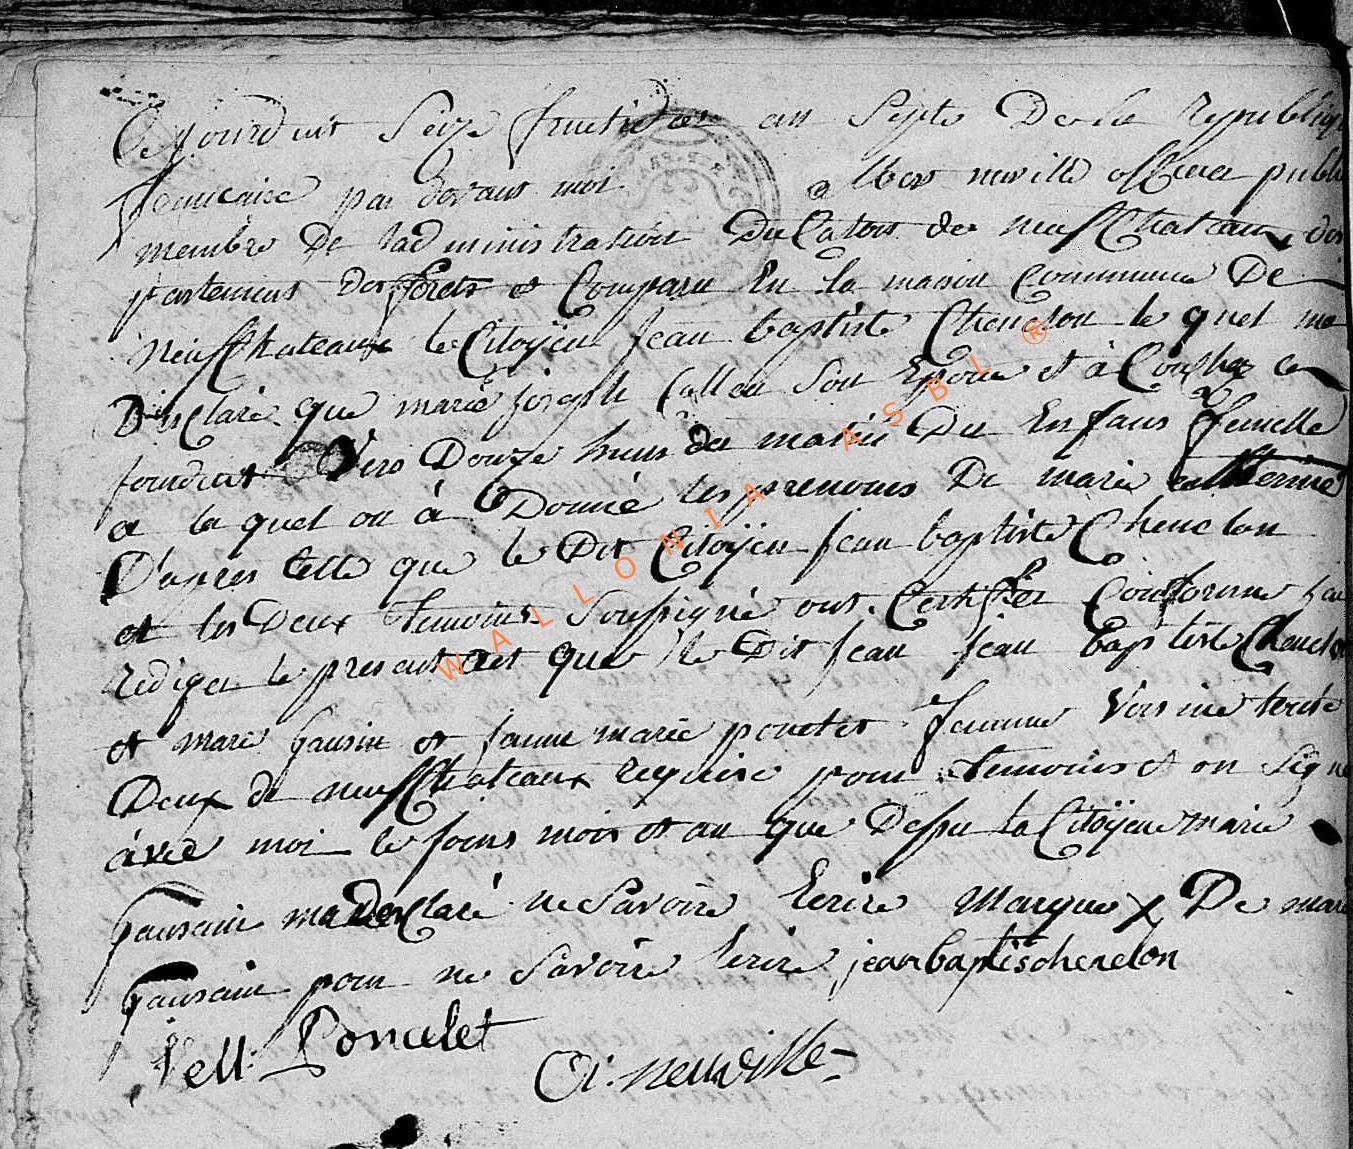 Ojourduit Seize fructidor an Septe De la Republiq
francaise par devant moi albert nuville officier publi
membre De lad ministration Du Caton de neufChateaux, de
partement des forets et Comparu En la maison Commune De
neufChateaux le Citoÿen Jean baptiste Chenelon le quel ma
DesClaré que marie joseph Callau Son Epouse et à Coucher ce
jourduit Vers Douze heure de matin Du Enfans femelle
a la quel on à Donné les prenoms De marie catherine
D'apres Celle que le Dit Citoÿen Jean baptiste Chenelon
et les Deux temoins Soussigné ont Certifier Conforme jai
rediger le present act que le Dit Jean Jean baptiste Chenelon
et marie gausin et jeanne marie poncelet femme Voisine toute
Deux de neufChateaux requise pour temoins et on Signe
avec moi le jours mois et an que Dessu la Citoÿene marie
gausain ma desClaré ne Savoire Ecrire Marque x De marie
gausain pour ne Savoire Ecrire jean baptis chenelon
Poncelet
neuville
WALLONIA ASBL ®